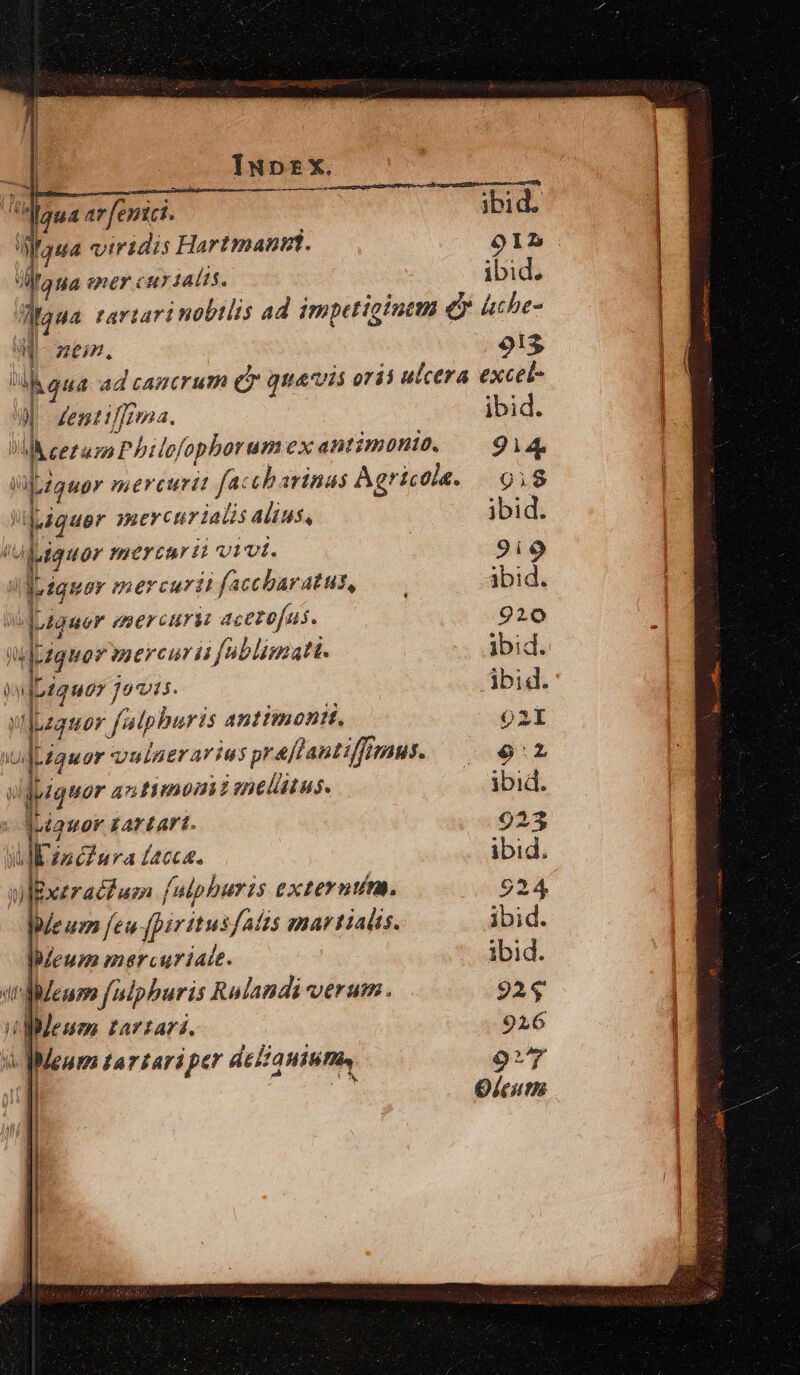 INDEX.
qua arſenici. ibid.
qua viridis Hartmanni. 912
qua mercurialis. ibid.
qua tartari nobilis ad impetiginem & liche-
nem. 913
qua ad cancrum & quævis oris ulcera excel-
lentiſſima. ibid.
cetum Philoſophorum ex antimonio. 914
Liquor mercurii ſaccharinus Agricolæ. 918
Liquor mercurialis alius, ibid.
Liquor mercurii vivi. 919
Liquor mercurii ſaccharatus, ibid.
Liquor mercurii acetoſus. 920
Liquor mercurii ſublimati. ibid.
Liquor Jovis. ibid.
Liquor ſulphuris antimonii. 921
Liquor vulnerarius præſtantiſſimus. 922
Liquor antimonii mellitus. ibid.
Liquor tartari. 923
inctura laccæ. ibid.
Extractum ſulphuris externúm. 924
leum ſeu ſpiritus ſalis martialis. ibid.
leum mercuriale. ibid.
leum ſulphuris Rulandi verum. 925
leum tartari. 926
leum tartari per deliquium, 927
Oleum